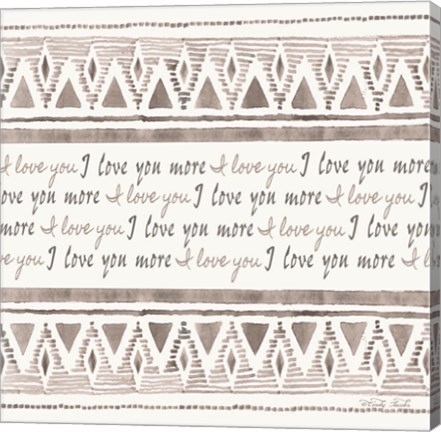 I love you I love you more I love you I love you more
ove you more I love you I love you more I love you I
more I love you I love you more I love you I love you
ve you I love you more I love you I love you more I